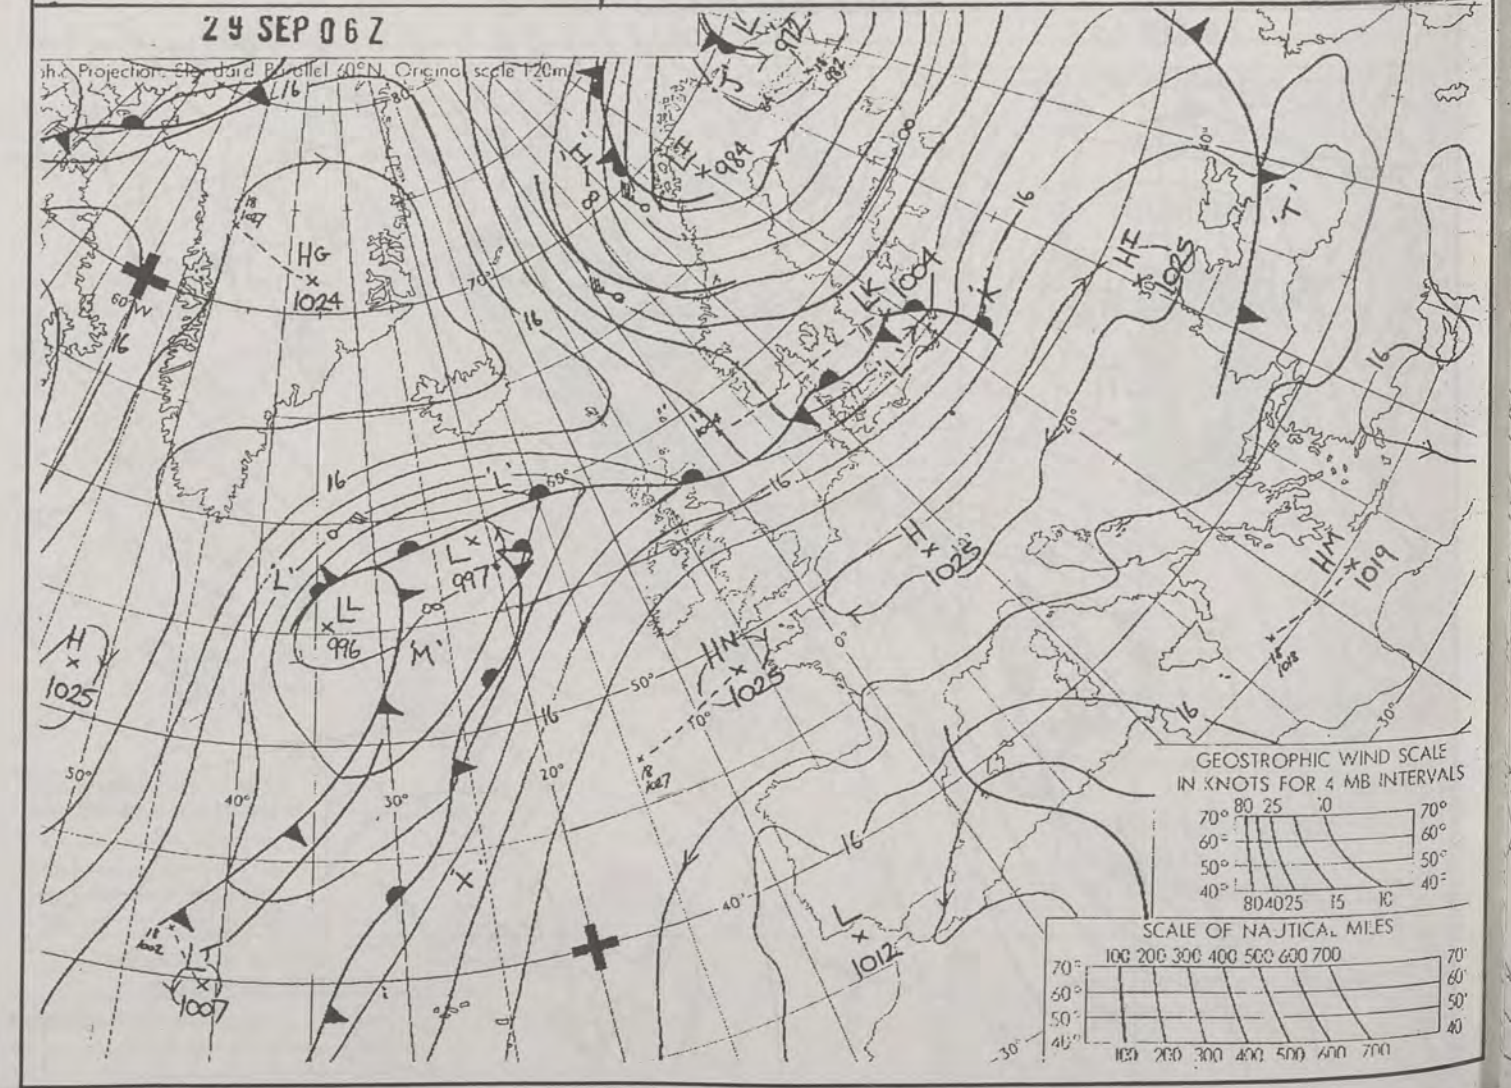 29 SEP 06Z
phic Projection. Standard Parallel 60°N. Original scale 1:20m
16
80°
L
972
982
H
984
'H'
8
18
1027
HG
1024
60°
W
16
70°
16
16
LK
1004
'X'
HI
1025
30°
'T'
16
20°
16
'L'
60°
16
L
997
'L'
LL
996
'M'
8
H
1025
H
1025
HM
1019
18
1018
0°
HN
1025
50°
10°
16
18
1027
16
30°
50°
40°
30°
20°
16
'X'
40°
L
1012
18
1002
L
1007
30°
GEOSTROPHIC WIND SCALE
IN KNOTS FOR 4 MB INTERVALS
80 25 10
70° 70°
60° 60°
50° 50°
40° 40°
80 40 25 15 10
SCALE OF NAUTICAL MILES
100 200 300 400 500 600 700
70° 70°
60° 60°
50° 50°
40° 40
100 200 300 400 500 600 700